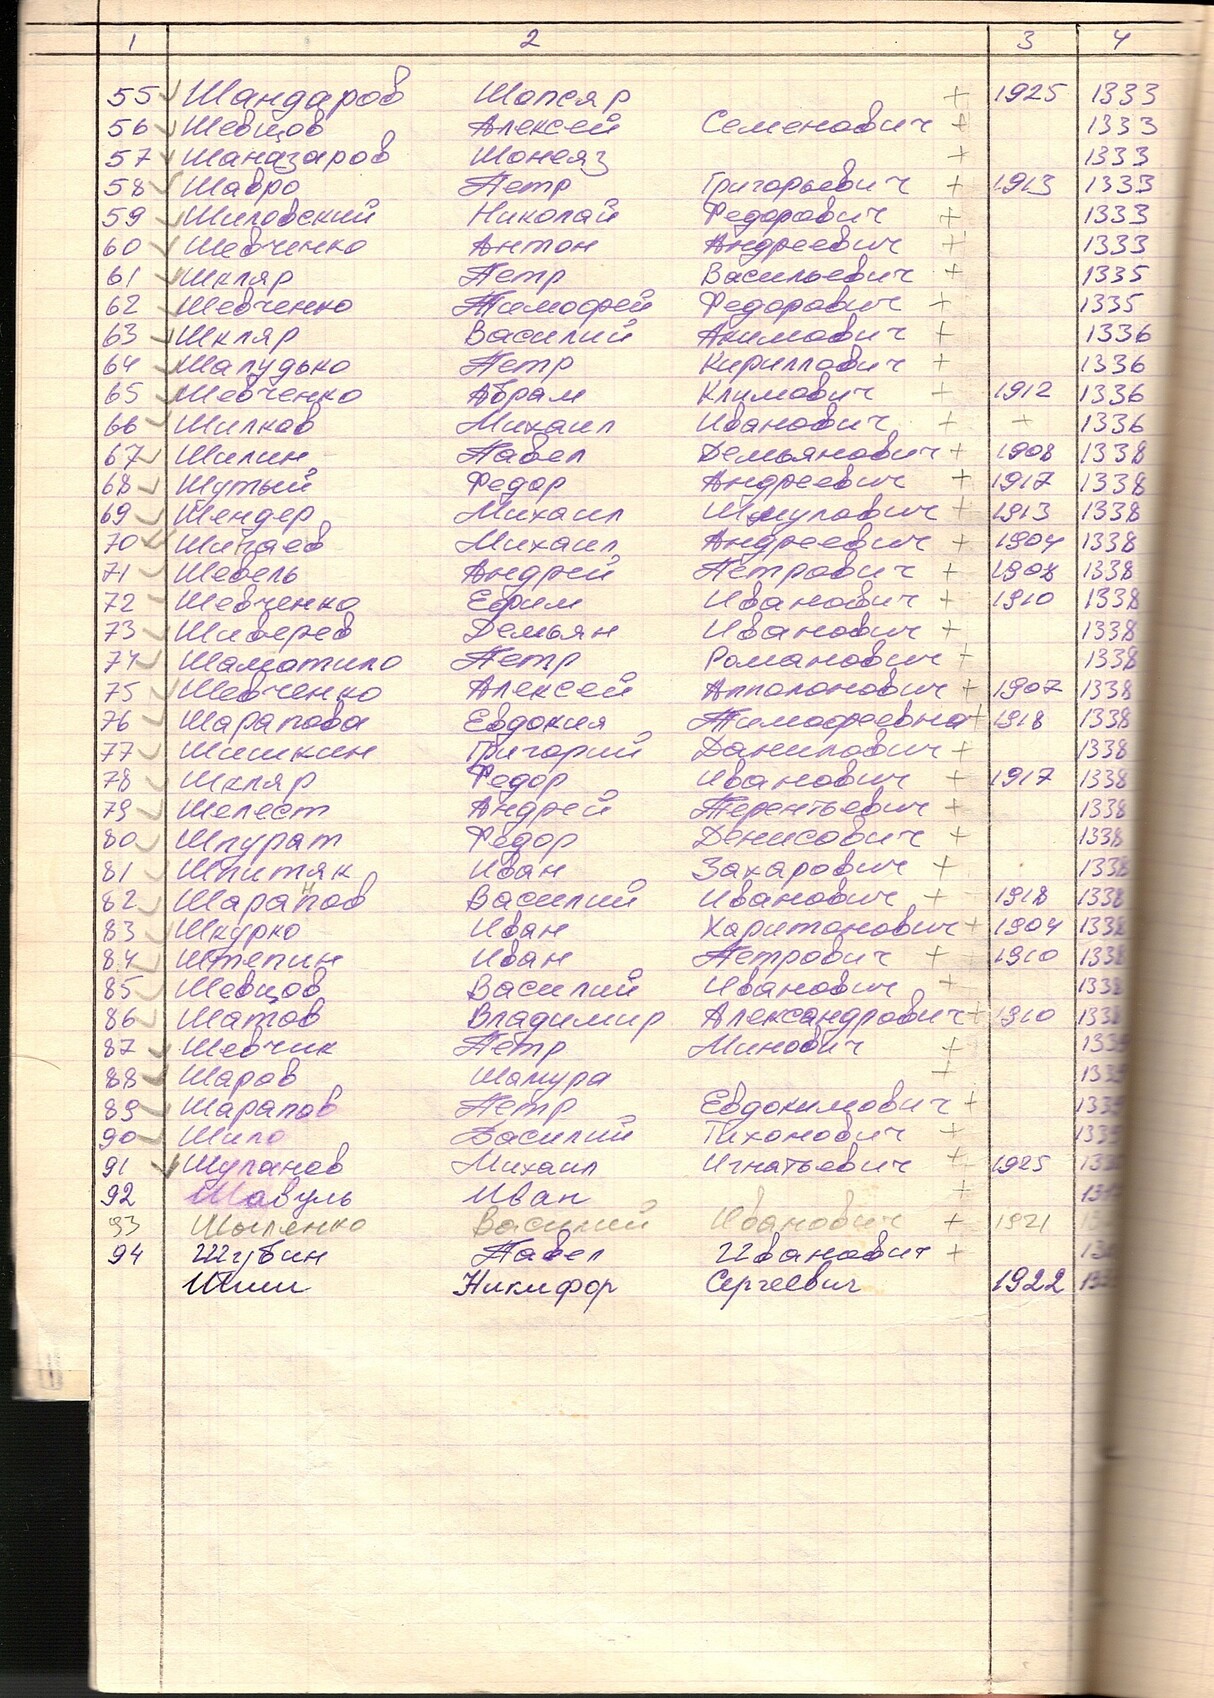 1 2 3 4
55 Шандаров Шопсяр + 1925 1333
56 Шевцов Алексей Семенович + 1333
57 Шаназаров Шонеяз + 1333
58 Шавро Петр Григорьевич + 1913 1333
59 Шиловский Николай Федорович + 1333
60 Шевченко Антон Андреевич + 1333
61 Шкляр Петр Васильевич + 1335
62 Шевченко Тимофей Федорович + 1335
63 Шкляр Василий Акимович + 1336
64 Шапудько Петр Кириллович + 1336
65 Шевченко Абрам Климович + 1912 1336
66 Шилков Михаил Иванович + + 1336
67 Шилин Павел Демьянович + 1908 1338
68 Шутый Федор Андреевич + 1917 1338
69 Шендер Михаил Шмулович + 1913 1338
70 Шипаев Михаил Андреевич + 1904 1338
71 Шевель Андрей Петрович + 1908 1338
72 Шевченко Ефрим Иванович + 1910 1338
73 Шиверев Демьян Иванович + 1338
74 Шамотило Петр Романович + 1338
75 Шевченко Алексей Апполонович + 1907 1338
76 Шарапова Евдокия Тимофеевна + 1918 1338
77 Шишкин Григорий Данилович + 1338
78 Шкляр Федор Иванович + 1917 1338
79 Шелест Андрей Терентьевич + 1338
80 Шпурат Федор Денисович + 1338
81 Шпитяк Иван Захарович + 1338
82 Шарапов Василий Иванович + 1918 1338
83 Шкурко Иван Харитонович + 1904 1338
84 Штепин Иван Петрович + 1910 1338
85 Шевцов Василий Иванович + 1338
86 Шатов Владимир Александрович + 1910 1338
87 Шевчик Петр Минович +
88 Шаров Шамура +
89 Шарапов Петр Евдокимович +
90 Шило Василий Тихонович +
91 Шупанов Михаил Игнатьевич + 1925
92 Шавуль Иван +
93 Василий Иванович + 1921
94 Шубин Павел Иванович +
Никифор Сергеевич 1922